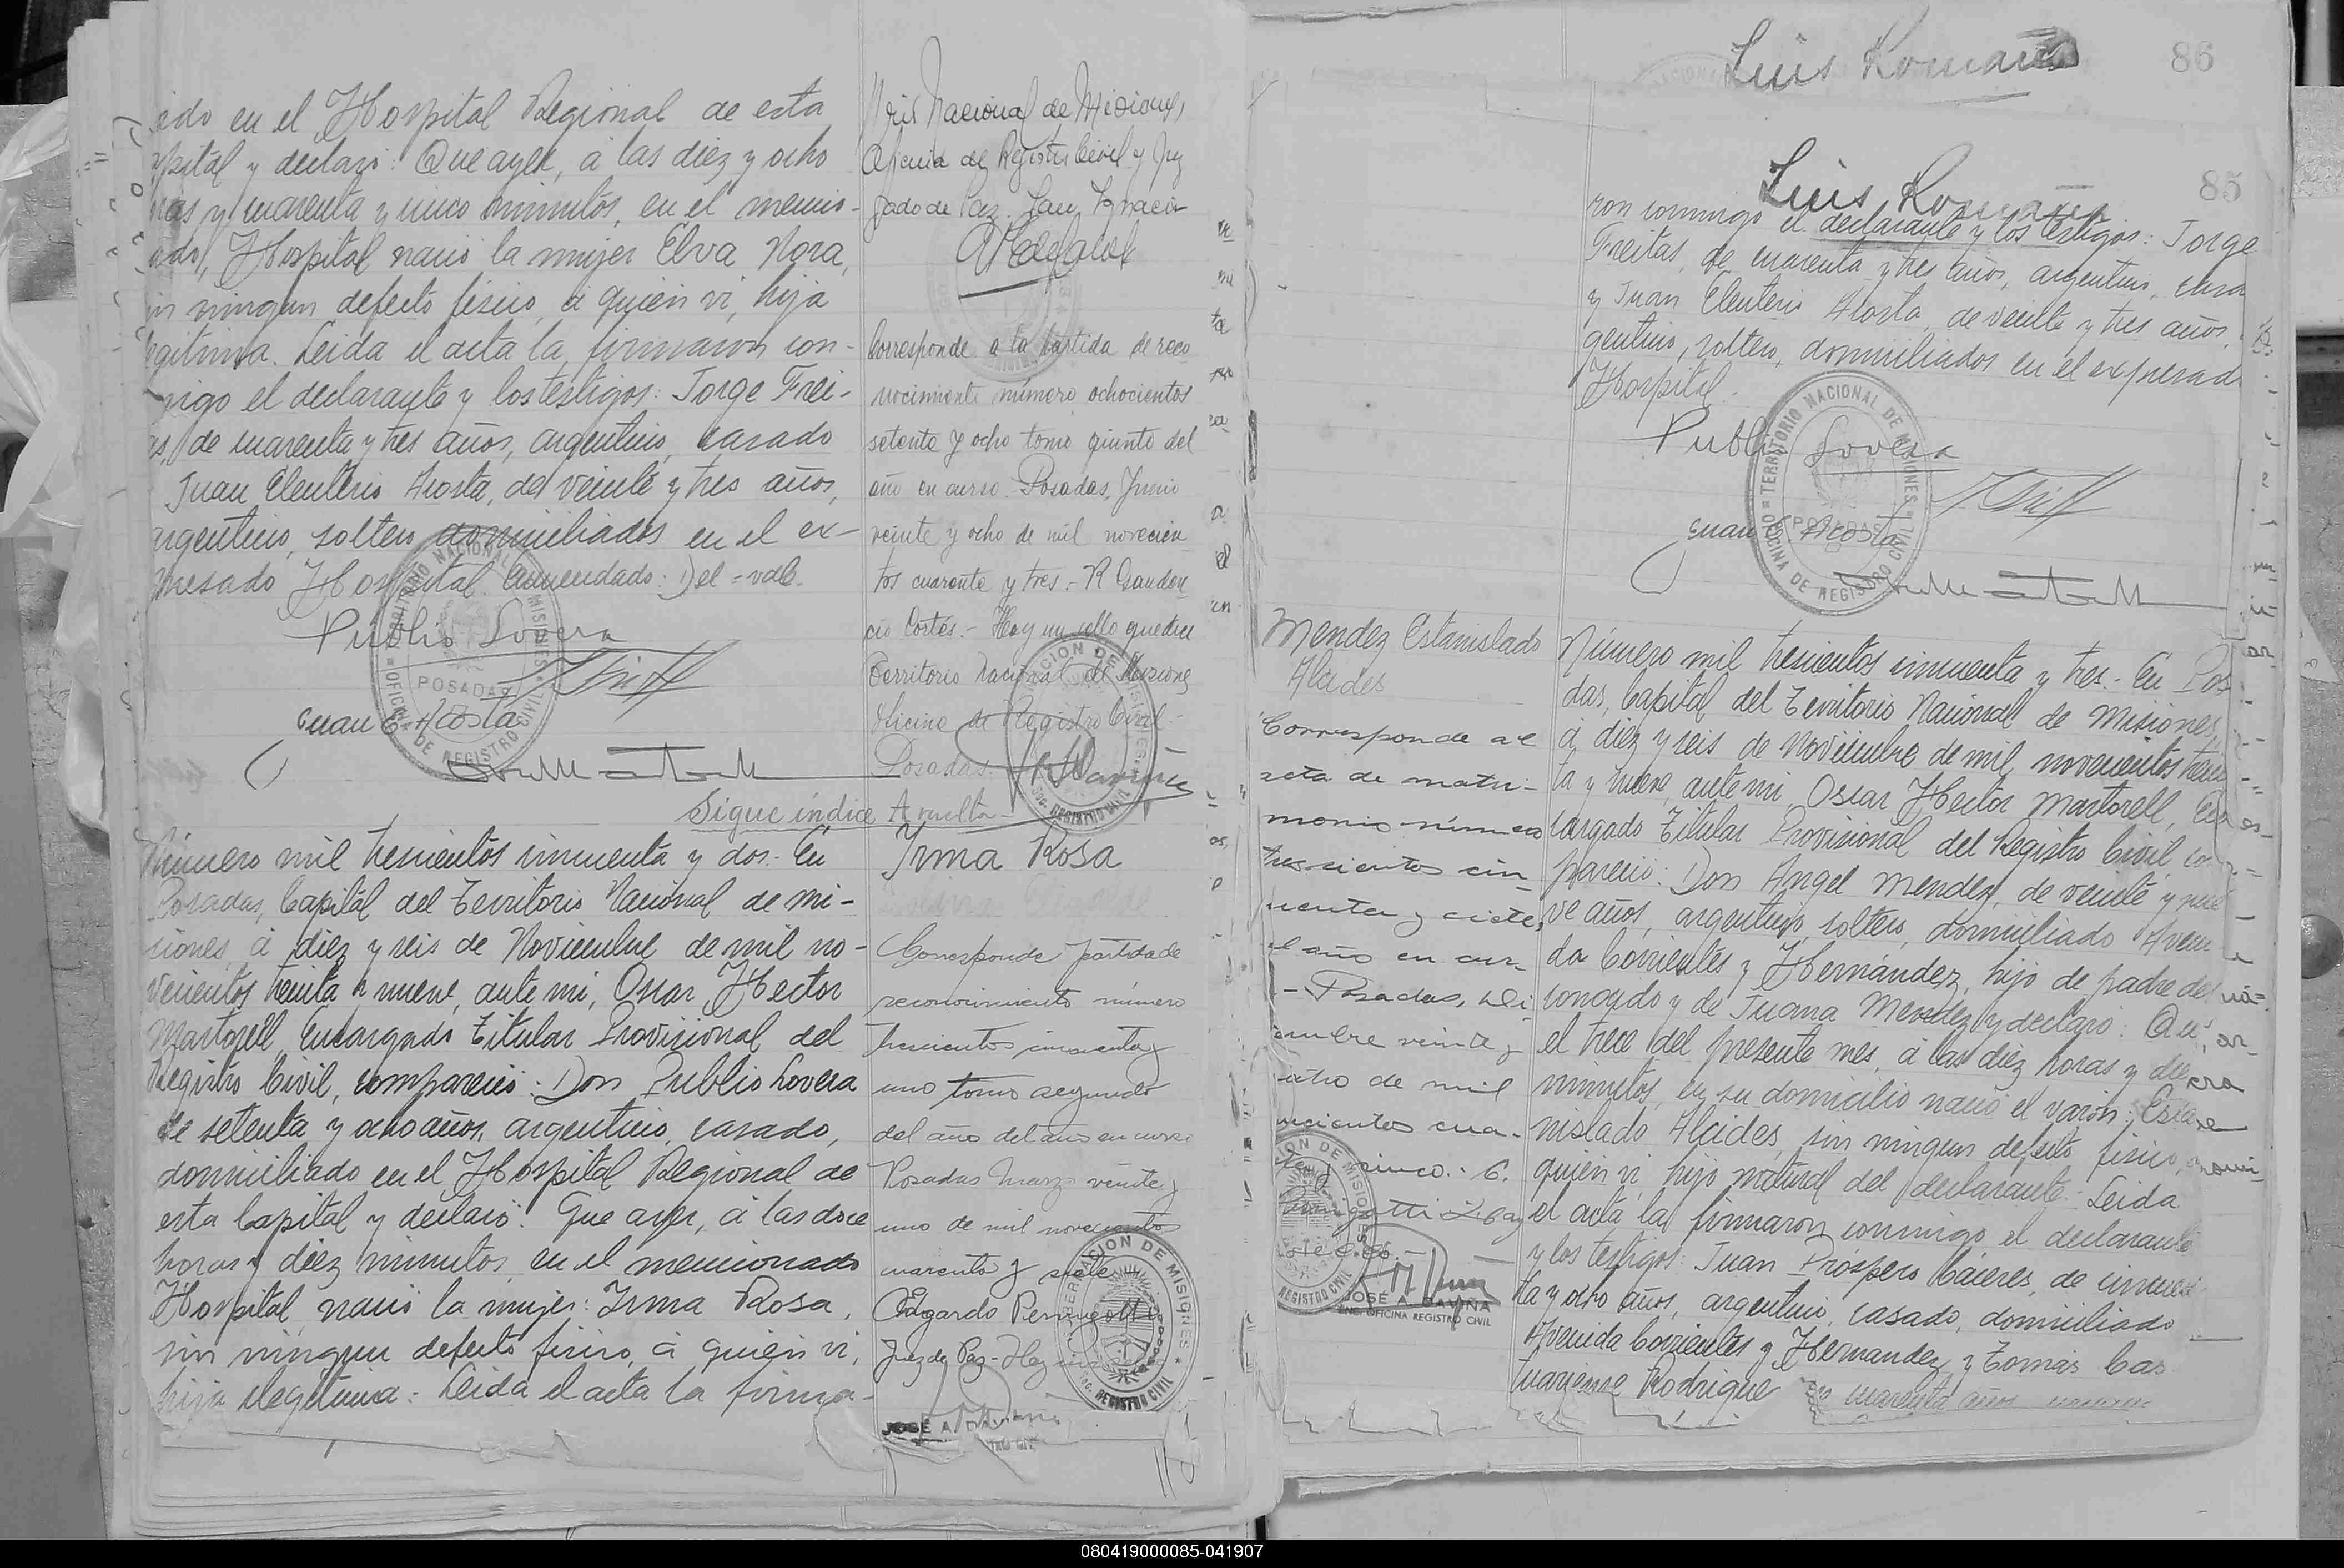 cido en el Hospital Regional de esta
Capital y declaró: Que ayer, á las diez y ocho
horas y cuarenta y cinco minutos, en el mencio-
nado Hospital nació la mujer Elva Nora,
sin ningun defecto físico, á quien vi, hija
legítima. Leida el acta la firmaron con-
migo el declarante y los testigos: Jorge Frei-
tas, de cuarenta y tres años, argentino, casado
Juan Eleuterio Acosta, de veinte y tres años,
argentino, soltero domiciliados en el ex-
presado Hospital. Enmendado: D) el = vale.
Publio Lovera
Juan E. Acosta
TERRITORIO NACIONAL DE MISIONES
POSADAS
OFICINA DE REGISTRO CIVIL
Sigue índice A vuelta
Número mil trescientos cincuenta y dos.- En
Posadas, Capital del Territorio Nacional de Mi-
siones, á diez y seis de Noviembre de mil no-
vecientos treinta y nueve, ante mi, Oscar Hector
Martorell, Encargado Titular Provisional del
Registro Civil, compareció: Don Publio Lovera
de setenta y ocho años, argentino, casado,
domiciliado en el Hospital Regional de
esta Capital y declaró: Que ayer, á las doce
horas y diez minutos, en el mencionado
Hospital, nació la mujer: Irma Rosa,
sin ningun defecto físico, á quien vi,
hija ilegítima: Leida el acta la firma-
Nacional de Misiones,
Oficina de Registro Civil y Juz
gado de Paz. San Ignacio
Corresponde a la partida de reco
nocimiento número ochocientos
setenta y ocho tomo quinto del
año en curso. Posadas, Junio
veinte y ocho de mil novecien
tos cuarenta y tres.- R Gauden
cio Cortés.- Hay un sello que dice
Territorio Nacional de Misiones
Oficina de Registro Civil -
Posadas.
Irma Rosa
Corresponde partida de
reconocimiento número
trescientos cincuenta y
uno tomo segundo
del año del año en curso
Posadas Marzo veinte y
uno de mil novecientos
cuarenta y siete
Edgardo Pernigotti
Juez de Paz - Hay un
GOBERNACION DE MISIONES
REGISTRO CIVIL
JOSÉ A. DAVIÑA
Luis Romaña
86
Luis Romaña
85
ron conmigo el declarante y los testigos: Jorge
Freitas, de cuarenta y tres años, argentino, casa
y Juan Eleuterio Acosta, de veinte y tres años,
gentino, soltero, domiciliados en el expresad
Hospital.
Publio Lovera
Juan E. Acosta
TERRITORIO NACIONAL DE MISIONES
POSADAS
OFICINA DE REGISTRO CIVIL
Mendez Estanislado
Alcides
Corresponde al
acta de matri-
monio número
trescientos cin-
cuenta y siete,
el año en cur-
- Posadas, Di
ciembre veinte y
cuatro de mil
vecientos cua-
renta y cinco.- E.
Pernigotti
GOBERNACION DE MISIONES
REGISTRO CIVIL
JOSÉ A. DAVIÑA
ENC. OFICINA REGISTRO CIVIL
Número mil trescientos cincuenta y tres.- En Pos
das, Capital del Territorio Nacional de Misiones,
á diez y seis de Noviembre de mil novecientos trein
ta y nueve, ante mi, Oscar Hector Martorell, En
cargado Titular Provisional del Registro Civil, com
pareció: Don Angel Mendez, de veinte y nue
ve años, argentino, soltero, domiciliado Aveni
da Corrientes y Hernández, hijo de padre des
conocido y de Juana Mendez y declaró: Que
el trece del presente mes, á las diez horas y diez
minutos, en su domicilio nació el varón: Esta
nislado Alcides, sin ningun defecto físico, á
quien vi, hijo natural del declarante.- Leida
el acta la firmaron conmigo el declarante
y los testigos: Juan Próspero Cáceres, de cincuen
ta y ocho años, argentino, casado, domiciliado
Avenida Corrientes y Hernandez y Tomás Cas
Rodrigue cuarenta años
080419000085-041907